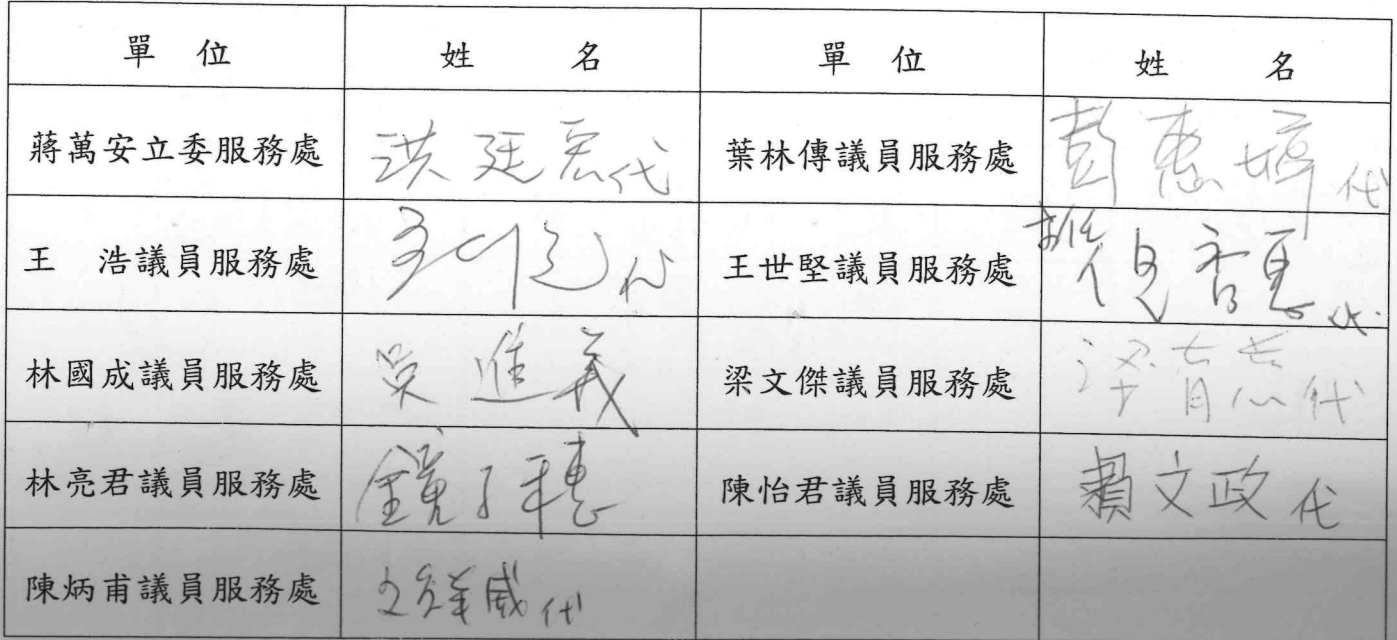 單 位 姓 名 單 位 姓 名
蔣萬安立委服務處 洪廷宏代 葉林傳議員服務處 彭惠婷代
王 浩議員服務處 代 王世堅議員服務處 代
林國成議員服務處 吳進義 梁文傑議員服務處 梁育志代
林亮君議員服務處 陳怡君議員服務處 賴文政代
陳炳甫議員服務處 威代